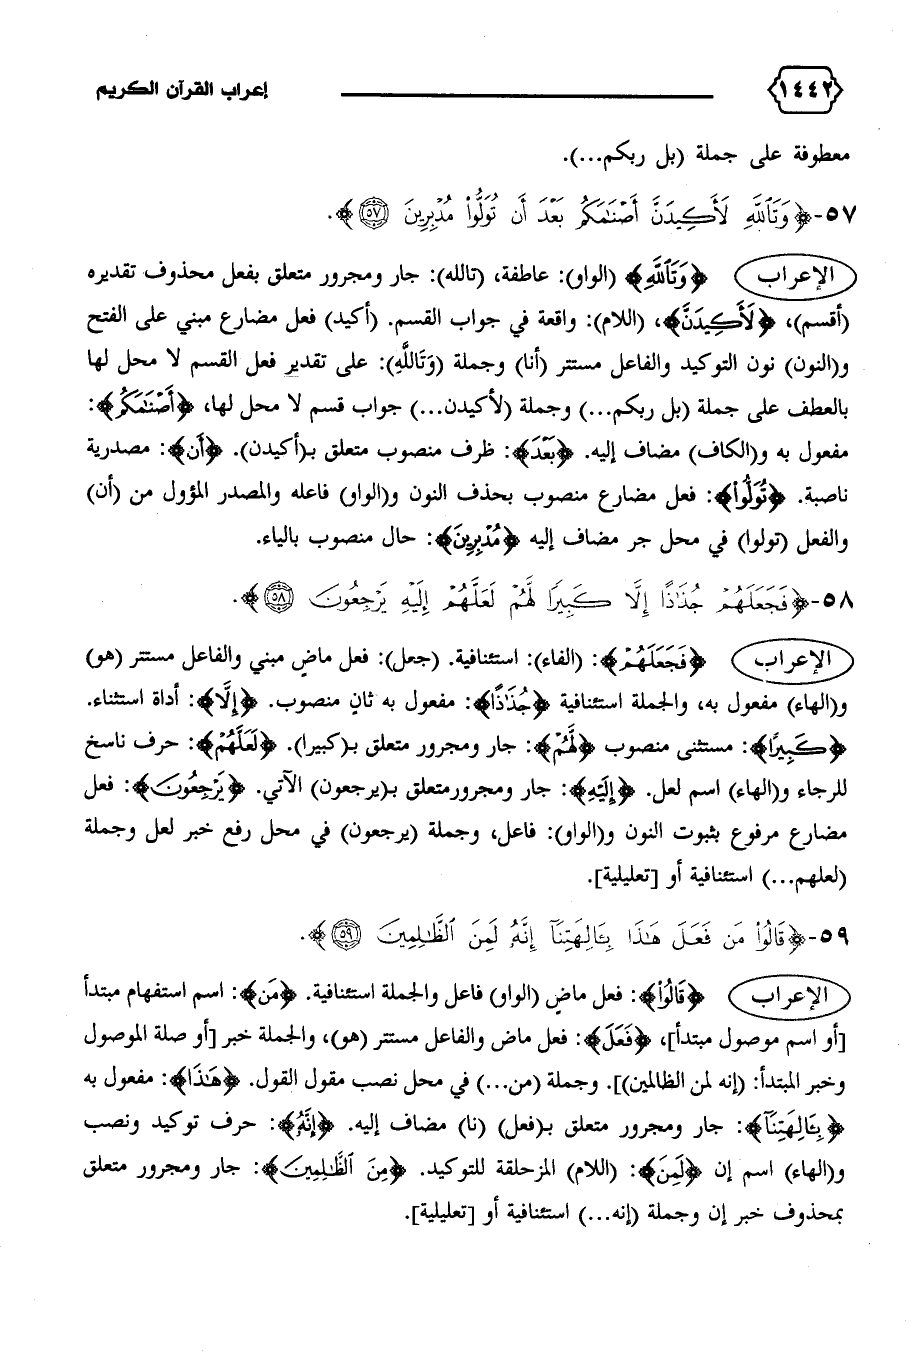 ١٤٤٢ إعراب القرآن الكريم
معطوفة على جملة (بل ربكم...).
٥٧-﴿وَتَٱللَّهِ لَأَكِيدَنَّ أَصْنَٰمَكُم بَعْدَ أَن تُوَلُّوا۟ مُدْبِرِينَ ٥٧﴾.
الإعراب ﴿وَتَٱللَّهِ﴾ (الواو): عاطفة، (تالله): جار ومجرور متعلق بفعل محذوف تقديره
(أقسم)، ﴿لَأَكِيدَنَّ﴾، (اللام): واقعة في جواب القسم. (أكيد) فعل مضارع مبني على الفتح
و(النون) نون التوكيد والفاعل مستتر (أنا) وجملة (وَتَاللَّهِ): على تقدير فعل القسم لا محل لها
بالعطف على جملة (بل ربكم...) وجملة (لأكيدن...) جواب قسم لا محل لها، ﴿أَصْنَٰمَكُم﴾:
مفعول به و(الكاف) مضاف إليه. ﴿بَعْدَ﴾: ظرف منصوب متعلق بـ(أكيدن). ﴿أَن﴾: مصدرية
ناصبة. ﴿تُوَلُّوا۟﴾: فعل مضارع منصوب بحذف النون و(الواو) فاعله والمصدر المؤول من (أن)
والفعل (تولوا) في محل جر مضاف إليه ﴿مُدْبِرِينَ﴾: حال منصوب بالياء.
٥٨-﴿فَجَعَلَهُمْ جُذَٰذًا إِلَّا كَبِيرًا لَّهُمْ لَعَلَّهُمْ إِلَيْهِ يَرْجِعُونَ ٥٨﴾.
الإعراب ﴿فَجَعَلَهُمْ﴾: (الفاء): استئنافية. (جعل): فعل ماضٍ مبني والفاعل مستتر (هو)
و(الهاء) مفعول به، والجملة استئنافية ﴿جُذَٰذًا﴾: مفعول به ثانٍ منصوب. ﴿إِلَّا﴾: أداة استثناء.
﴿كَبِيرًا﴾: مستثنى منصوب ﴿لَّهُمْ﴾: جار ومجرور متعلق بـ(كبيرا). ﴿لَعَلَّهُمْ﴾: حرف ناسخ
للرجاء و(الهاء) اسم لعل. ﴿إِلَيْهِ﴾: جار ومجرورمتعلق بـ(يرجعون) الآتي. ﴿يَرْجِعُونَ﴾: فعل
مضارع مرفوع بثبوت النون و(الواو): فاعل، وجملة (يرجعون) في محل رفع خبر لعل وجملة
(لعلهم...) استئنافية أو [تعليلية].
٥٩-﴿قَالُوا۟ مَن فَعَلَ هَٰذَا بِـَٔالِهَتِنَآ إِنَّهُۥ لَمِنَ ٱلظَّٰلِمِينَ ٥٩﴾.
الإعراب ﴿قَالُوا۟﴾: فعل ماضٍ (الواو) فاعل والجملة استئنافية. ﴿مَن﴾: اسم استفهام مبتدأ
[أو اسم موصول مبتدأ]، ﴿فَعَلَ﴾: فعل ماض والفاعل مستتر (هو)، والجملة خبر [أو صلة الموصول
وخبر المبتدأ: (إنه لمن الظالمين)]. وجملة (من...) في محل نصب مقول القول. ﴿هَٰذَا﴾: مفعول به
﴿بِـَٔالِهَتِنَآ﴾: جار ومجرور متعلق بـ(فعل) (نا) مضاف إليه. ﴿إِنَّهُۥ﴾: حرف توكيد ونصب
و(الهاء) اسم إن ﴿لَمِنَ﴾: (اللام) المزحلقة للتوكيد. ﴿مِنَ ٱلظَّٰلِمِينَ﴾: جار ومجرور متعلق
بمحذوف خبر إن وجملة (إنه...) استئنافية أو [تعليلية].